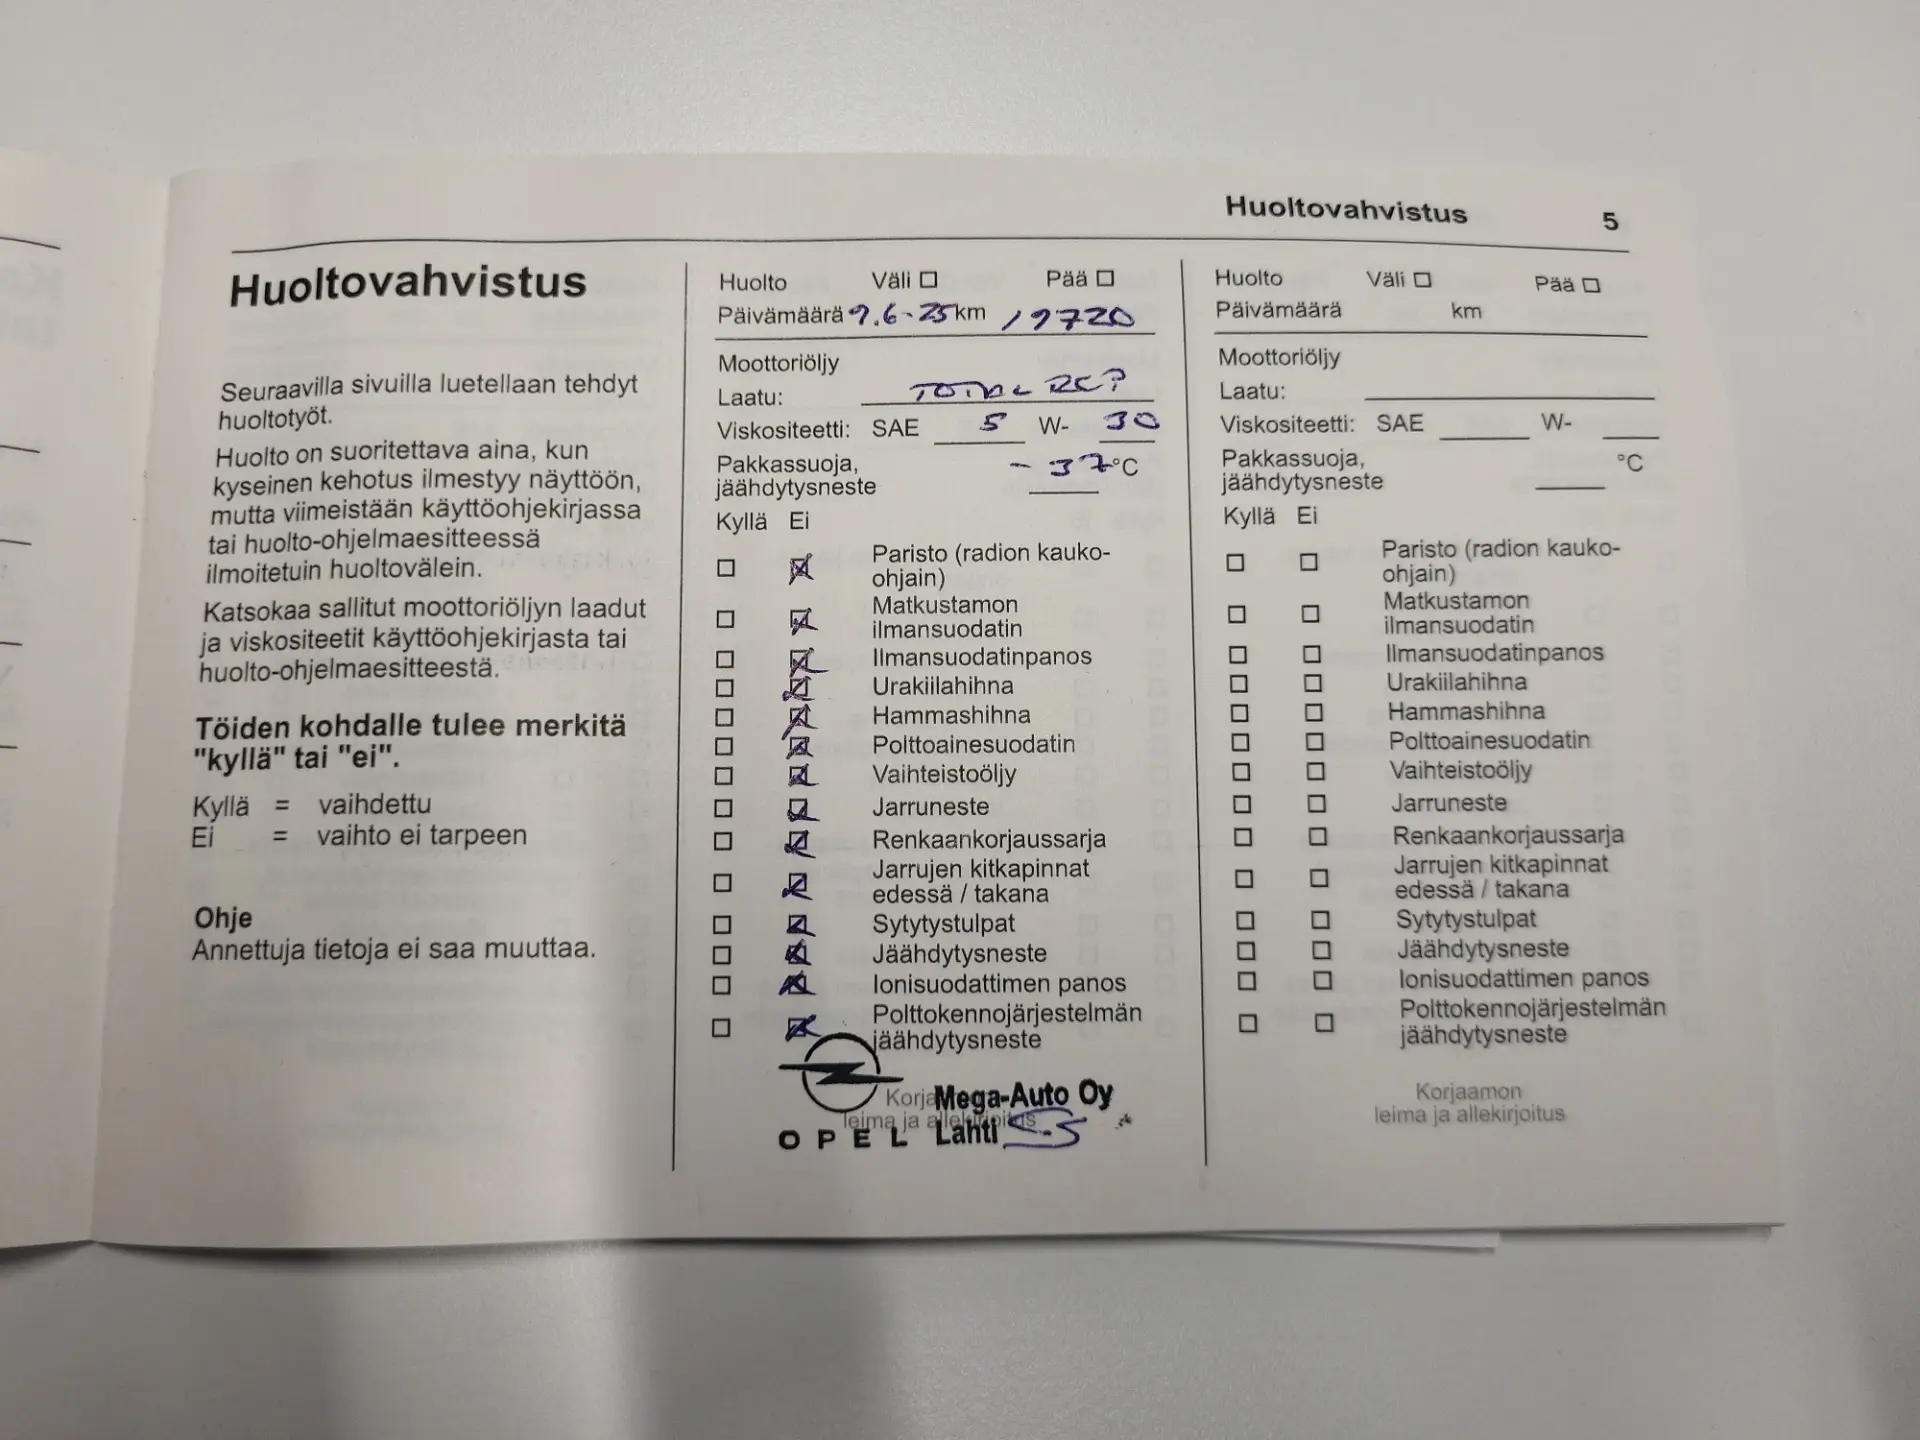 Huoltovahvistus 5
Huoltovahvistus
Seuraavilla sivuilla luetellaan tehdyt
huoltotyöt.
Huolto on suoritettava aina, kun
kyseinen kehotus ilmestyy näyttöön,
mutta viimeistään käyttöohjekirjassa
tai huolto-ohjelmaesitteessä
ilmoitetuin huoltovälein.
Katsokaa sallitut moottoriöljyn laadut
ja viskositeetit käyttöohjekirjasta tai
huolto-ohjelmaesitteestä.
Töiden kohdalle tulee merkitä
"kyllä" tai "ei".
Kyllä = vaihdettu
Ei = vaihto ei tarpeen
Ohje
Annettuja tietoja ei saa muuttaa.
Huolto Väli Pää
Päivämäärä 9.6-25 km 19720
Moottoriöljy
Laatu: TOTAL
Viskositeetti: SAE 5 W- 30
Pakkassuoja, - 37 °C
jäähdytysneste
Kyllä Ei
Paristo (radion kauko-
ohjain)
Matkustamon
ilmansuodatin
Ilmansuodatinpanos
Urakiilahihna
Hammashihna
Polttoainesuodatin
Vaihteistoöljy
Jarruneste
Renkaankorjaussarja
Jarrujen kitkapinnat
edessä / takana
Sytytystulpat
Jäähdytysneste
Ionisuodattimen panos
Polttokennojärjestelmän
jäähdytysneste
Mega-Auto Oy
leima ja allekirjoitus
OPEL Lahti
Huolto Väli Pää
Päivämäärä km
Moottoriöljy
Laatu:
Viskositeetti: SAE W-
Pakkassuoja, °C
jäähdytysneste
Kyllä Ei
Paristo (radion kauko-
ohjain)
Matkustamon
ilmansuodatin
Ilmansuodatinpanos
Urakiilahihna
Hammashihna
Polttoainesuodatin
Vaihteistoöljy
Jarruneste
Renkaankorjaussarja
Jarrujen kitkapinnat
edessä / takana
Sytytystulpat
Jäähdytysneste
Ionisuodattimen panos
Polttokennojärjestelmän
jäähdytysneste
Korjaamon
leima ja allekirjoitus